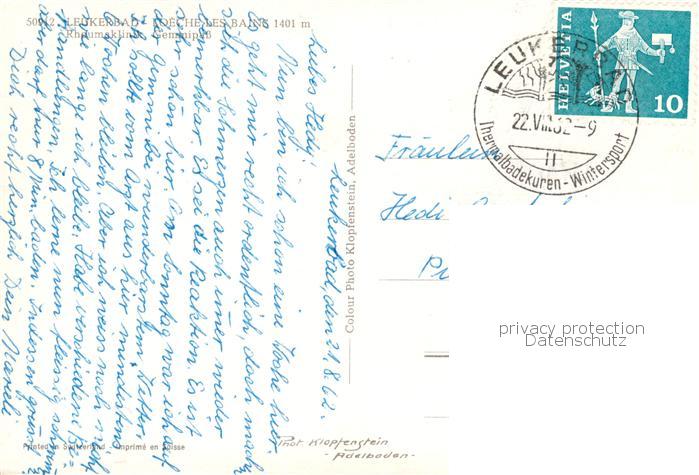 50912 LEUKERBAD - LOÈCHE-LES-BAINS 1401 m
Rheumaklinik, Gemmipaß
Leukerbad, den 21.8.62.
Liebes Hedy!
Nun bin ich schon eine Woche hier.
Es geht mir recht ordentlich, doch machen
sich die Schmerzen auch immer wieder
bemerkbar. Es sei die Reaktion. Es ist
sehr schön hier. Am Sonntag war ich auf
der Gemmi bei wunderbarstem Wetter.
Ich sollte vom Arzt aus hier mindestens
Wochen bleiben. Aber ich weiss noch nicht
wie lange ich bleibe. Habe verschiedene Be-
handlungen. Ich lerne nun fleissig schwimmen
aber darf nur 8 Min. baden. Indessen grüsst
Dich recht herzlich Dein
Colour Photo Klopfenstein, Adelboden
Printed in Switzerland - Imprimé en Suisse
Phot. Klopfenstein
- Adelboden -
HELVETIA
10
LEUKERBAD
22.VIII.62-9
II
Thermalbadekuren - Wintersport
Fräulein
Hedi
privacy protection
Datenschutz